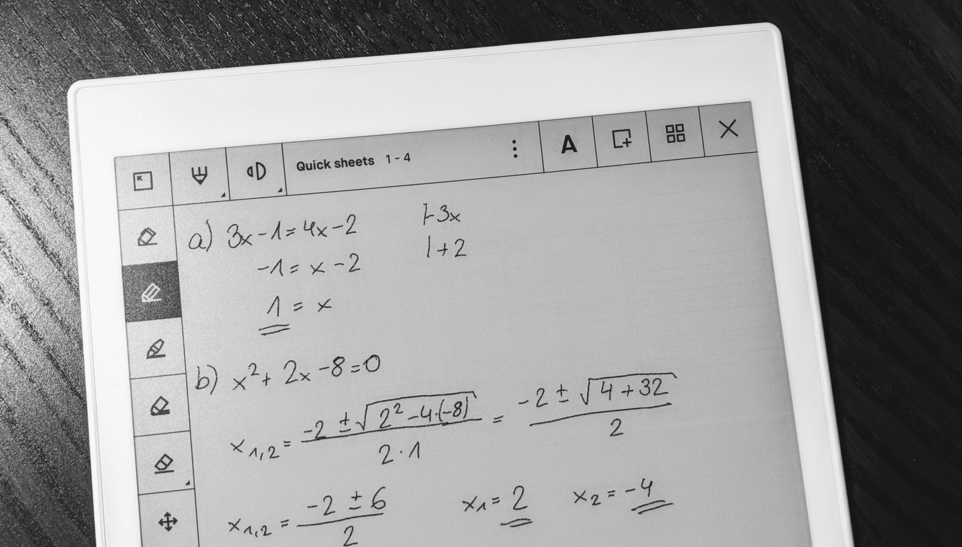 Quick sheets 1 - 4
A
a) 3x - 1 = 4x - 2 |-3x
-1 = x - 2 |+2
1 = x
b) x² + 2x - 8 = 0
x₁,₂ = (-2 ± √(2² - 4·(-8))) / (2·1) = (-2 ± √(4 + 32)) / 2
x₁,₂ = (-2 ± 6) / 2 x₁ = 2 x₂ = -4